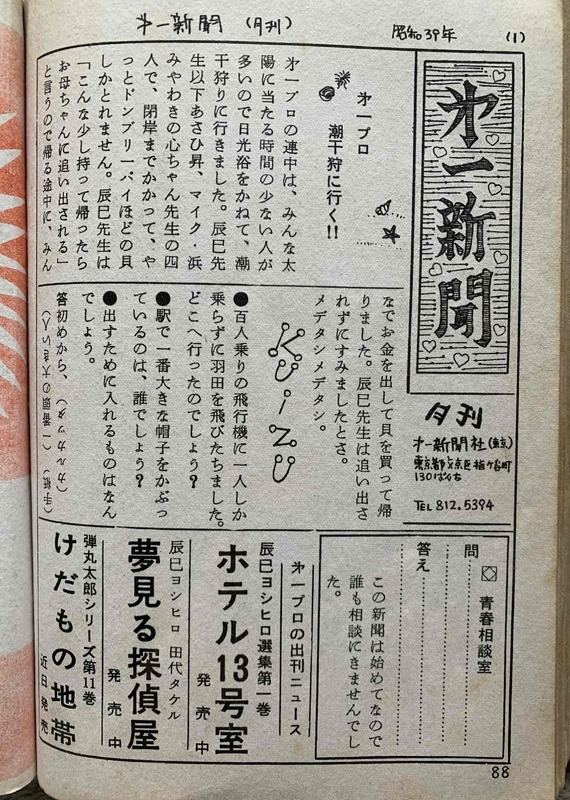 才一新聞 (月刊)
昭和39年
(1)
才一新聞
月刊
才一新聞社(東京)
東京都文京区指ケ谷町
130ばんち
TEL 812.5394
才一プロ
潮干狩に行く!!
才一プロの連中は、みんな太
陽に当たる時間の少ない人が
多いので日光浴をかねて、潮
干狩りに行きました。辰巳先
生以下あさひ昇、マイク・浜
みやわきの心ちゃん先生の四
人で、閉岸までかかって、や
っとドンブリ一パイほどの貝
しかとれません。辰巳先生は
「こんな少し持って帰ったら
お母ちゃんに追い出される」
と言うので帰る途中に、みん
なでお金を出して貝を買って帰
りました。辰巳先生は追い出さ
れずにすみましたとさ。
メデタシメデタシ。
KUiZU
●百人乗りの飛行機に一人しか
乗らずに羽田を飛びたちました。
どこへ行ったのでしょう?
●駅で一番大きな帽子をかぶっ
ているのは、誰でしょう?
●出すために入れるものはなん
でしょう。
答初めから、(カルカッタ)
(一番頭の大きい人)(手紙)
◇ 青春相談室
問
答え
この新聞は始めてなので
誰も相談にきませんでし
た。
才一プロの出刊ニュース
辰巳ヨシヒロ選集第一巻
ホテル13号室
発売中
辰巳ヨシヒロ 田代タケル
夢見る探偵屋
発売中
弾丸太郎シリーズ第11巻
けだもの地帯
近日発売
88